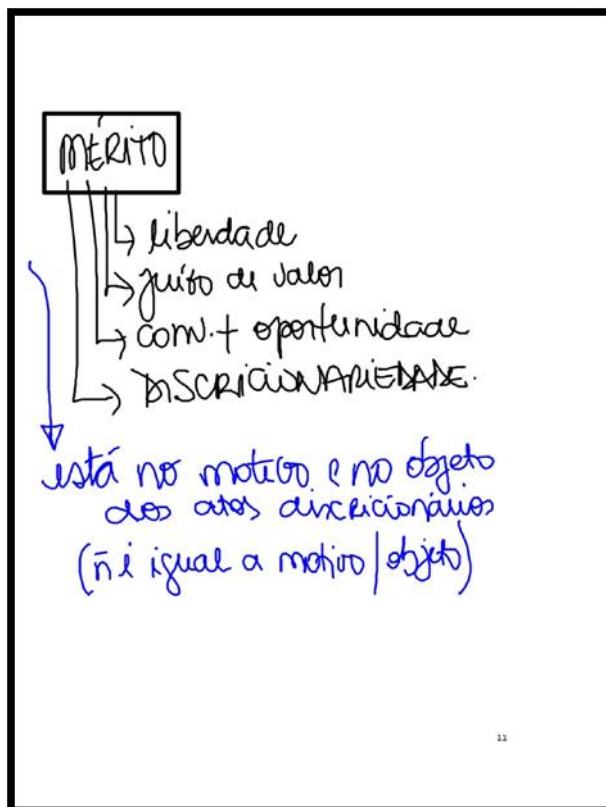 MÉRITO
liberdade
juízo de valor
conv. + oportunidade
DISCRICIONARIEDADE.
está no motivo e no objeto
dos atos discricionários
(ñ é igual a motivo | objeto)
11